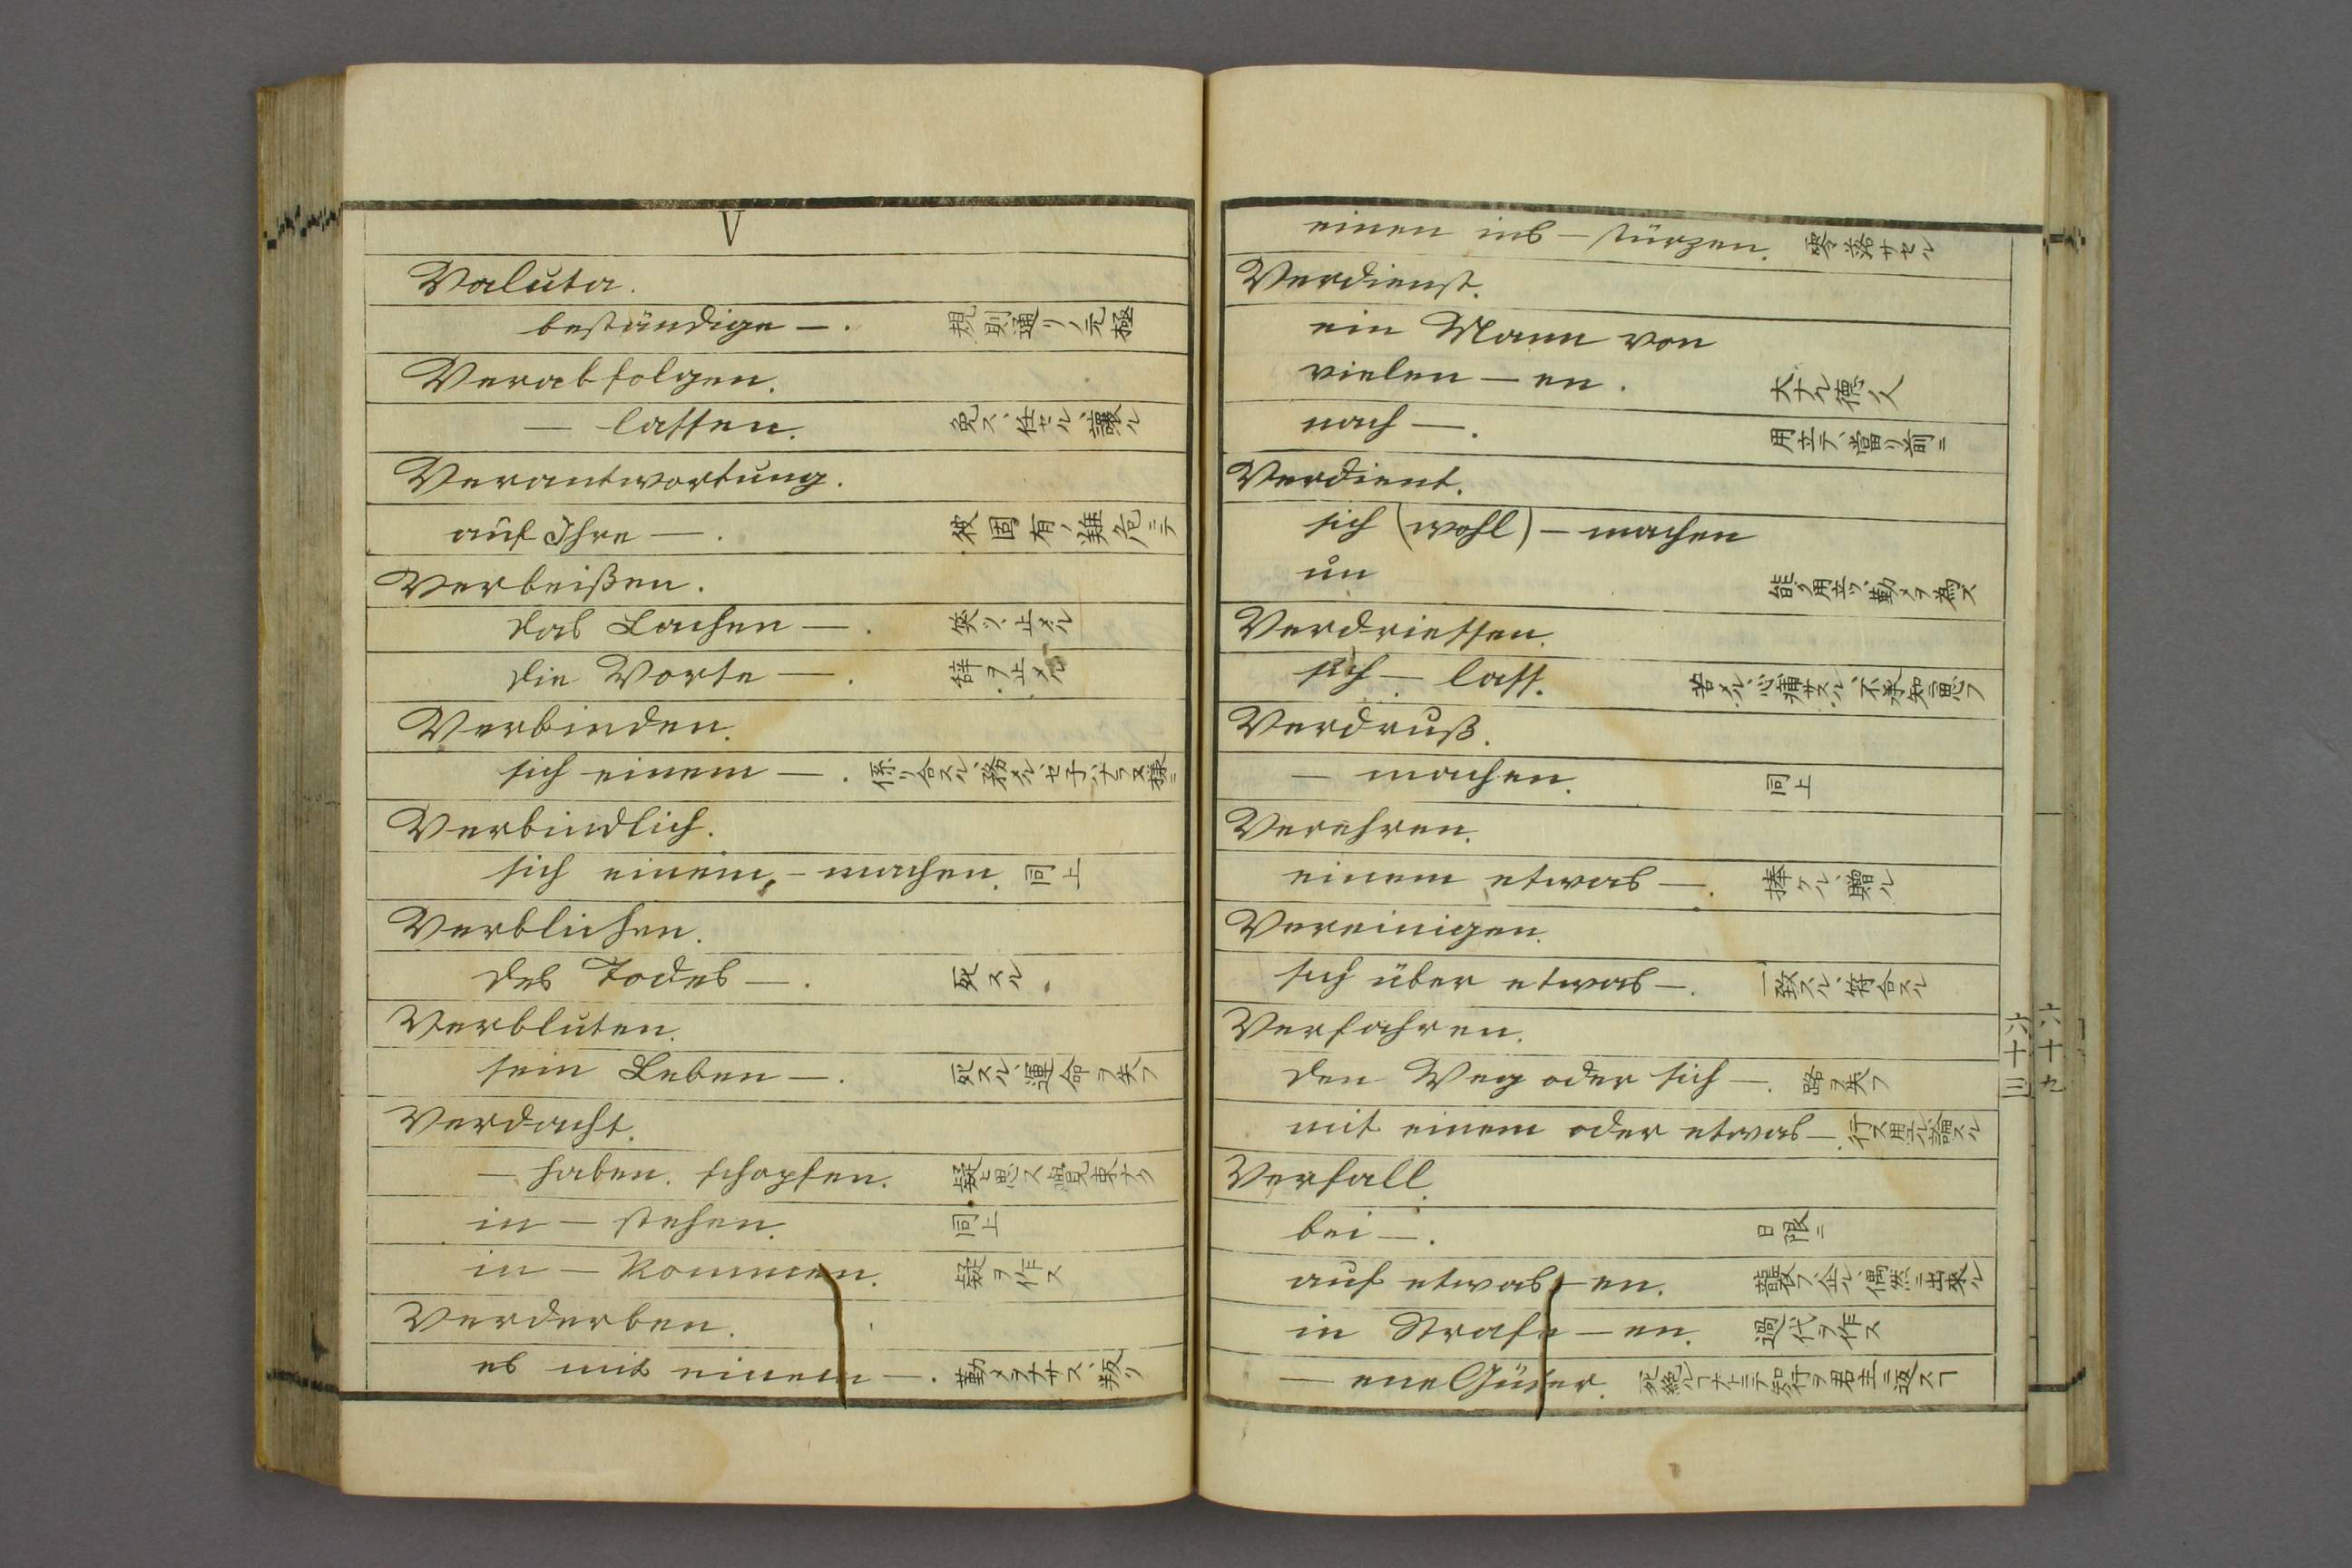 V
Valuta.
beständige —. 規則通リノ元極
Verabfolgen.
— lassen. 免ス、任セル、譲ル
Verantwortung.
auf Ihre —. 彼固有ノ難危ニテ
Verbeißen.
das Lachen —. 笑ヲ止メル
die Worte —. 辞ヲ止メル
Verbinden.
sich einem —. 係リ合スル、務メル、セ子バナラヌ様ニ
Verbindlich.
sich einem, — machen. 同上
Verblichen.
des Todes —. 死スル
Verbluten.
sein Leben —. 死スル、運命ヲ失フ
Verdacht.
— haben. schopfen. 疑ヒ思ス覺束ナク
in — stehen. 同上
in — kommen. 疑ヲ作ス
Verderben.
es mit einem —. 勤メヲナサス、叛ク
einen ins — stürzen. 零落サセル
Verdienst.
ein Mann von
vielen — en. 大ナル德ノ人
nach —. 用立テ、當リ前ニ
Verdient.
sich (wohl) — machen
un 能ク用立ツ、勤メヲ為ス
Verdriessen.
sich — lass. 苦メル、心痛サスル、不承知ニ思フ
Verdruß.
— machen. 同上
Verehren.
einem etwas —. 捧ケル、贈ル
Vereinigen.
sich über etwas —. 一致スル、符合スル
Verfahren.
den Weg oder sich —. 路ヲ失フ
mit einem oder etwas —. 行ス用立ル、論スル
Verfall.
bei —. 日限ニ
auf etwas — en. 襲フ、企ル、偶然ニ出來ル
in Strafe — en. 過代ヲ作ス
— ene Güter. 死絶ルコナトニテ知行ヲ君主ニ返スコ
六十三
六十九